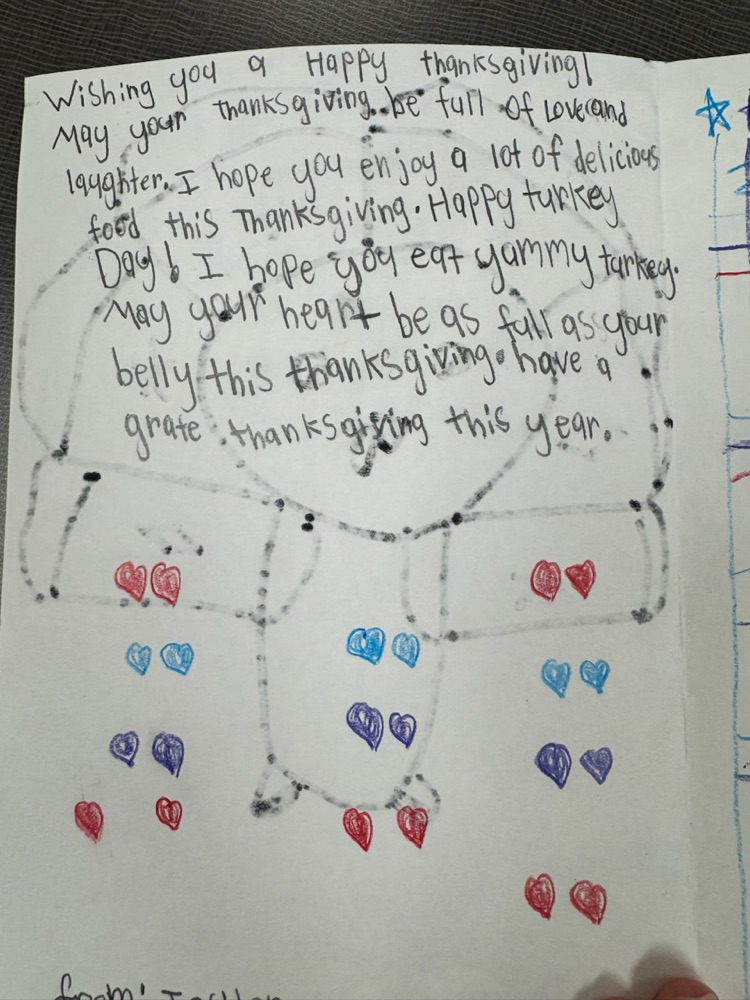 Wishing you a Happy thanksgiving!
May your thanksgiving be full of Love and
laughter. I hope you enjoy a lot of delicious
food this Thanksgiving. Happy turkey
Day! I hope you eat yummy turkey.
May your heart be as full as your
belly this thanksgiving. have a
grate thanksgiving this year.
from: